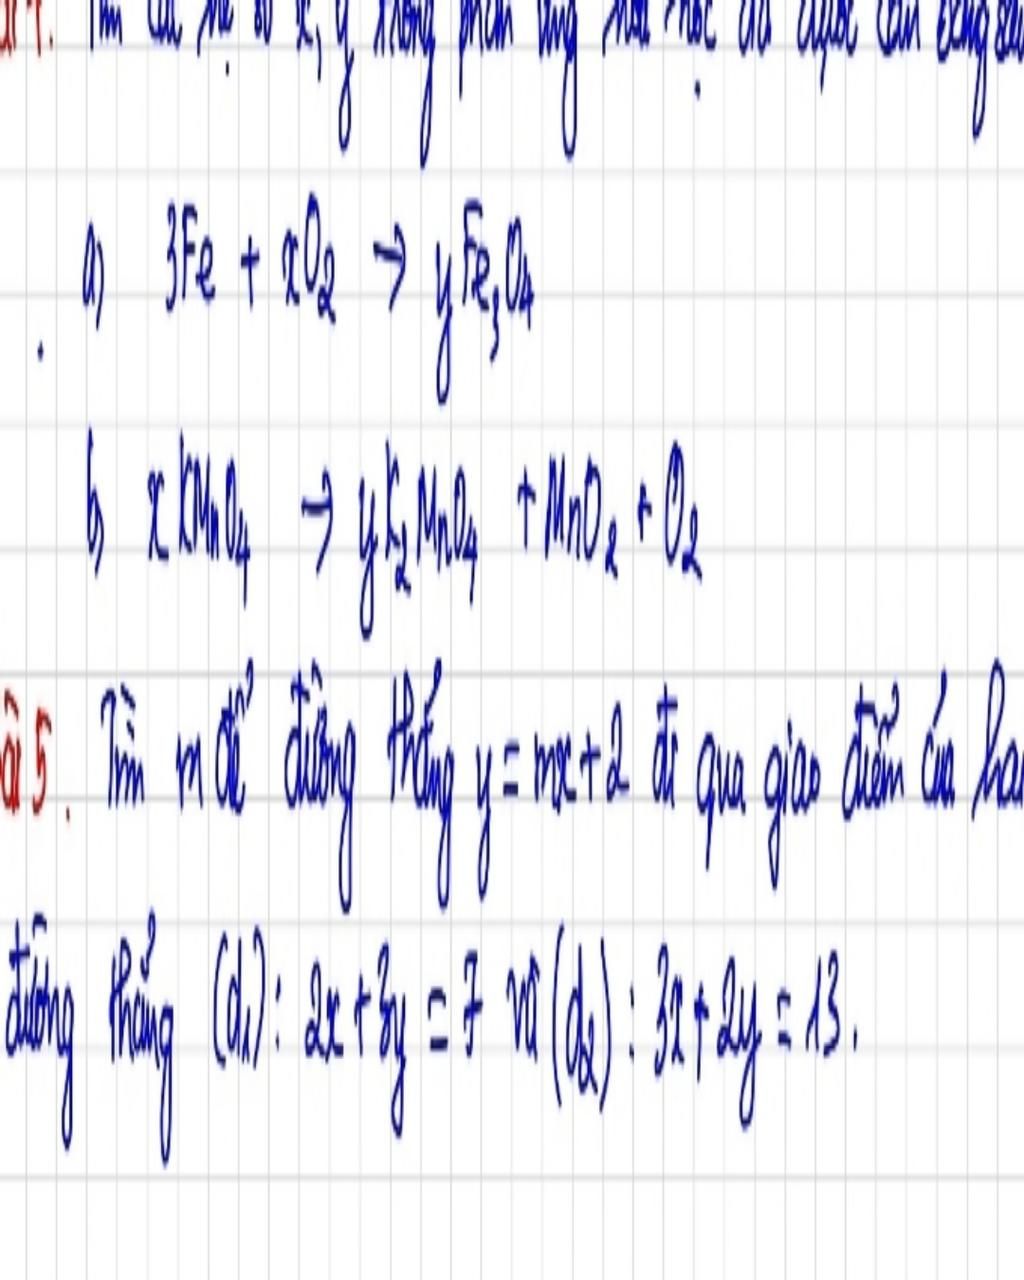 Tìm các hệ số x, y trong phản ứng hoá học đã được cân bằng sau
a) 3Fe + xO₂ → yFe₃O₄
b) xKMnO₄ → yK₂MnO₄ + MnO₂ + O₂
Bài 5. Tìm m để đường thẳng y = mx + 2 đi qua giao điểm của hai
đường thẳng (d₁): 2x + 3y = 7 và (d₂): 3x + 2y = 13.